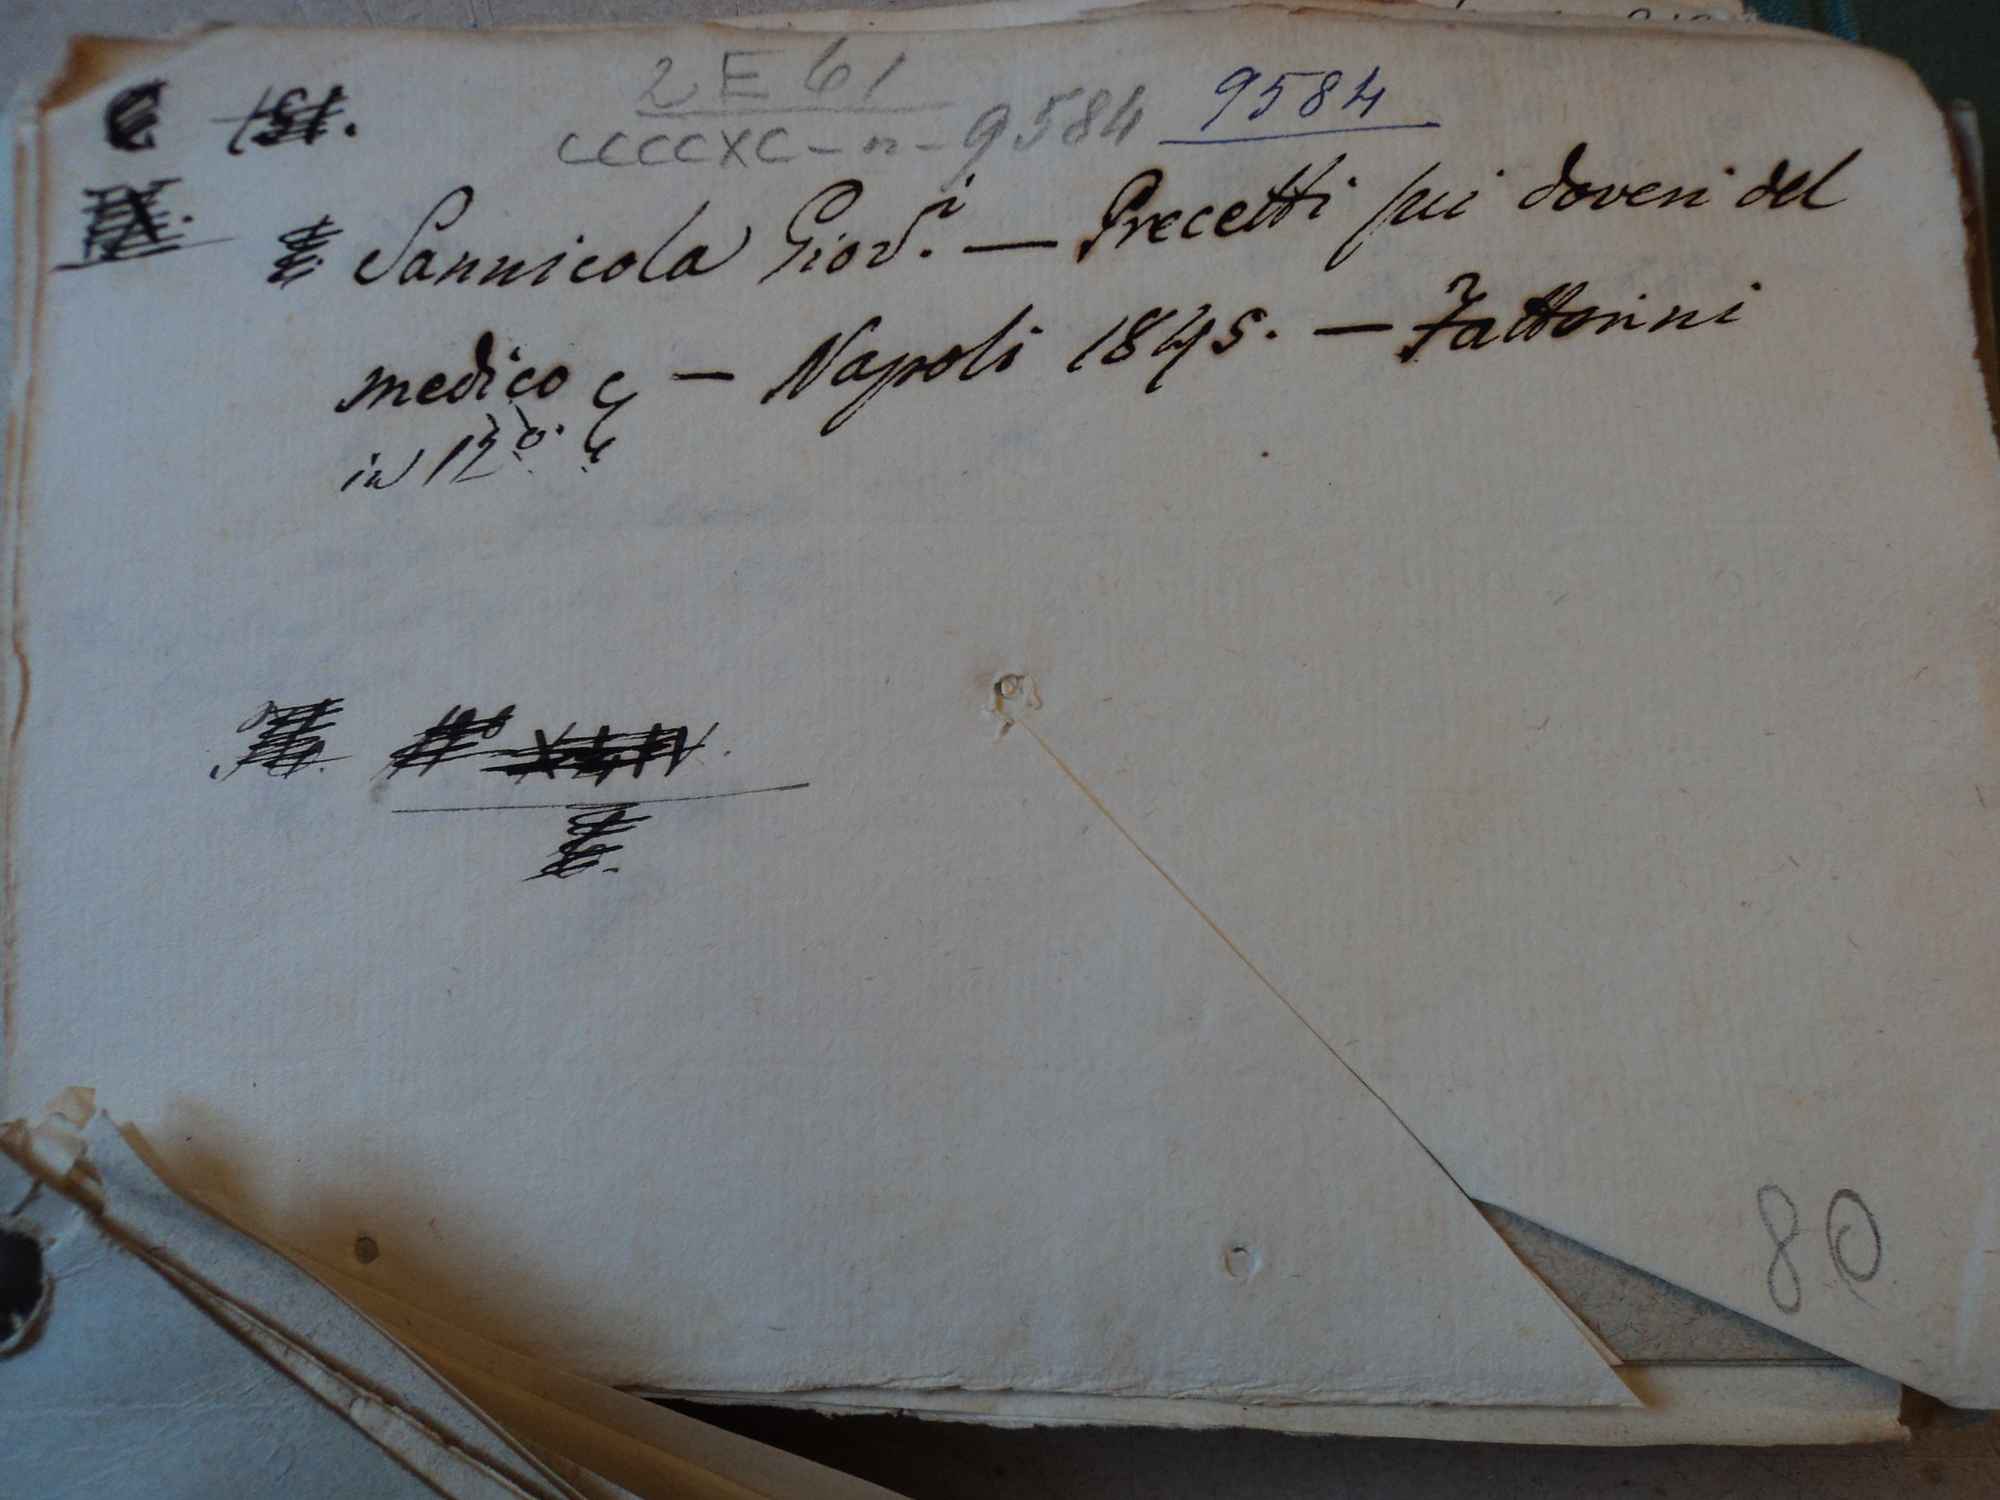 2 E 61
CCCCXC - n - 9584 9584
151.
IX.
Sannicola Giov.i — Precetti sui doveri del
medico — Napoli 1845. — Fattorini
in 12°.
80